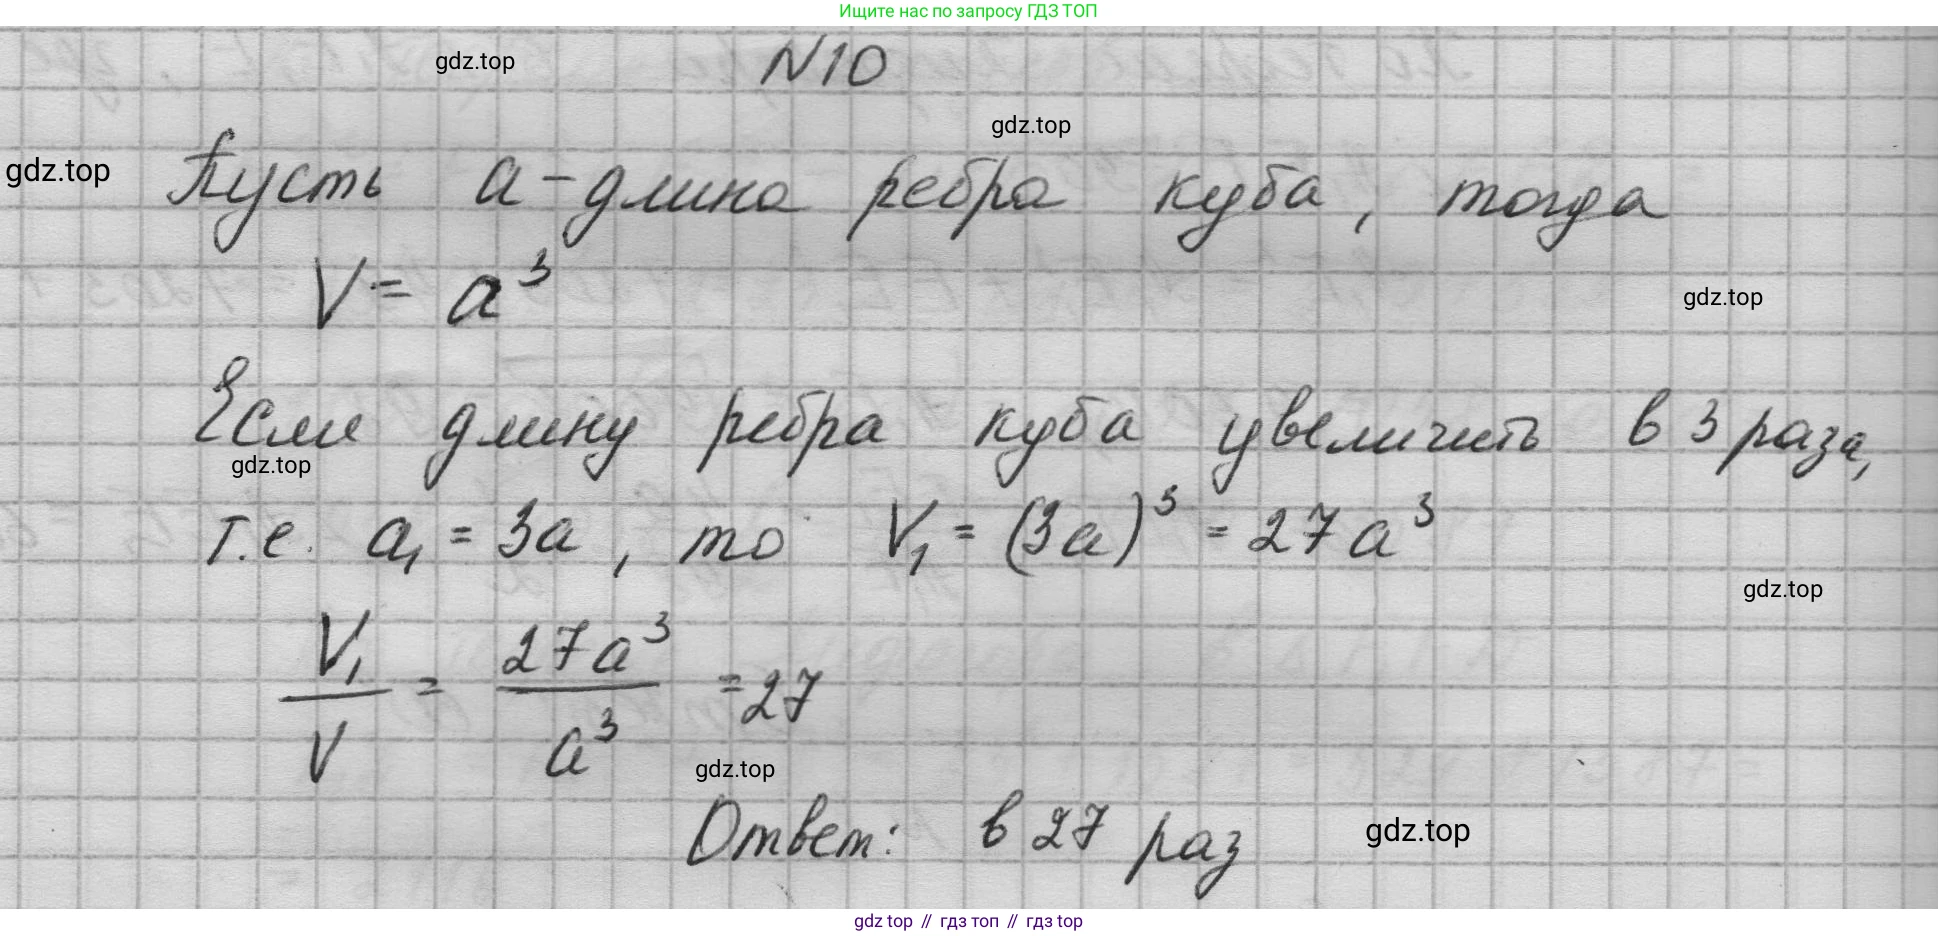 Ищите нас по запросу ГДЗ ТОП
gdz.top
N10
gdz.top
gdz.top
Пусть a - длина ребра куба, тогда
V = a³
gdz.top
Если длину ребра куба увеличить в 3 раза,
gdz.top
т.е. a₁ = 3a, то V₁ = (3a)³ = 27a³
gdz.top
V₁/V = 27a³/a³ = 27
gdz.top
Ответ: в 27 раз
gdz.top
gdz top // гдз топ // гдз top